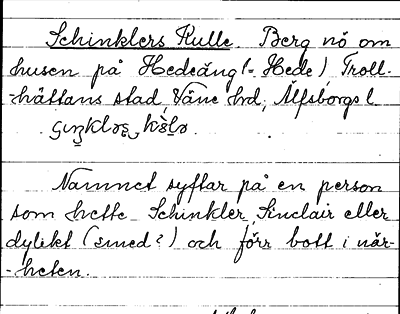 Schinklers Kulle. Berg nö om
husen på Hedeäng (= Hede), Troll-
-hättans stad, Väne hd, Älfsborgs l.
Namnet syftar på en person
som hette Schinkler, Sinclair eller
dylikt (smed?) och förr bott i när-
-heten.